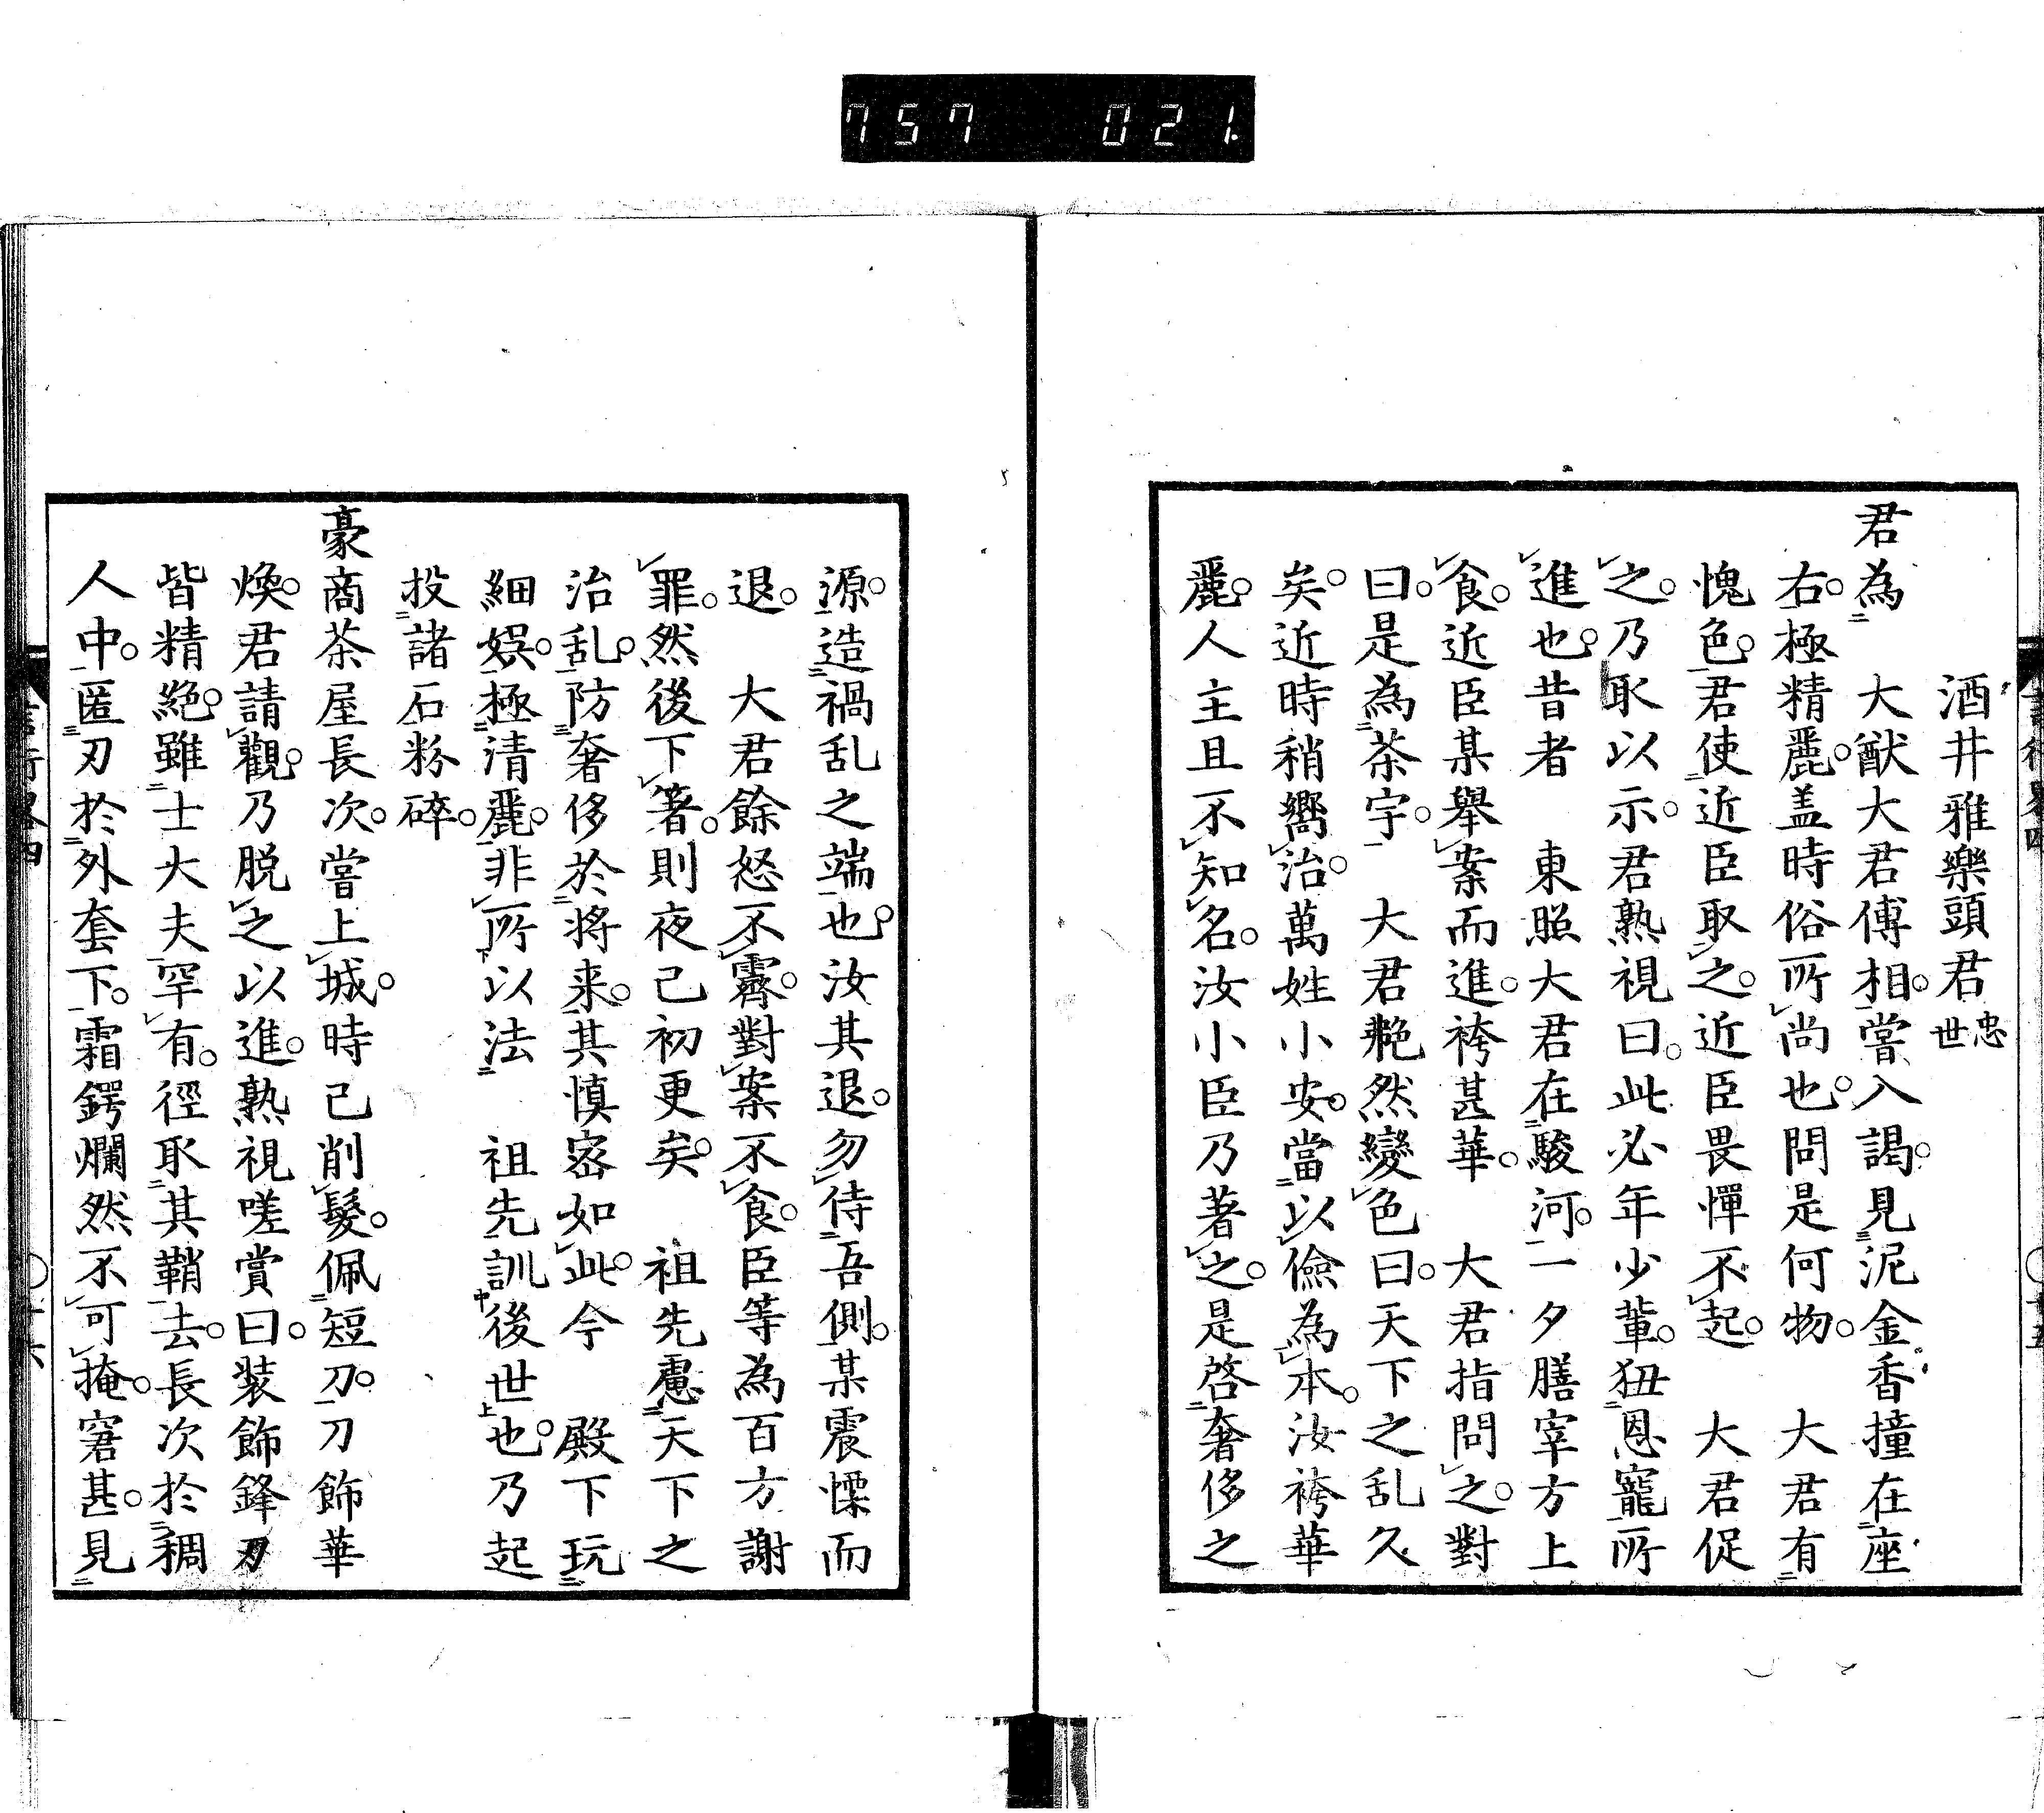 757 021.
酒井雅樂頭君忠世
君為 大猷大君傅相。嘗入謁。見泥金香撞在座
右。極精麗。盖時俗所尚也。問是何物。 大君有
愧色。君使近臣取之。近臣畏憚不起。 大君促
之。乃取以示。君熟視曰。此必年少輩。狃恩寵所
進也。昔者 東照大君在駿河。一夕膳宰方上
食。近臣某舉案而進。袴甚華。 大君指問之。對
曰。是為茶宇。 大君艴然變色曰。天下之乱久
矣。近時稍嚮治。萬姓小安。當以儉為本。汝袴華
麗。人主且不知名。汝小臣乃著之。是啓奢侈之
源。造禍乱之端也。汝其退。勿侍吾側。某震慄而
退。 大君餘怒不霽。對案不食。臣等為百方謝
罪。然後下箸。則夜已初更矣。 祖先慮天下之
治乱。防奢侈於将来。其慎密如此。今 殿下玩
細娯。極清麗。非所以法 祖先訓後世也。乃起
投諸石粉碎。
豪商茶屋長次。嘗上城。時已削髮。佩短刀。刀飾華
煥。君請觀。乃脱之以進。熟視嗟賞曰。装飾鋒刃
皆精絶。雖士大夫罕有。徑取其鞘去。長次於稠
人中。匿刃於外套下。霜鍔爛然不可掩。窘甚。見